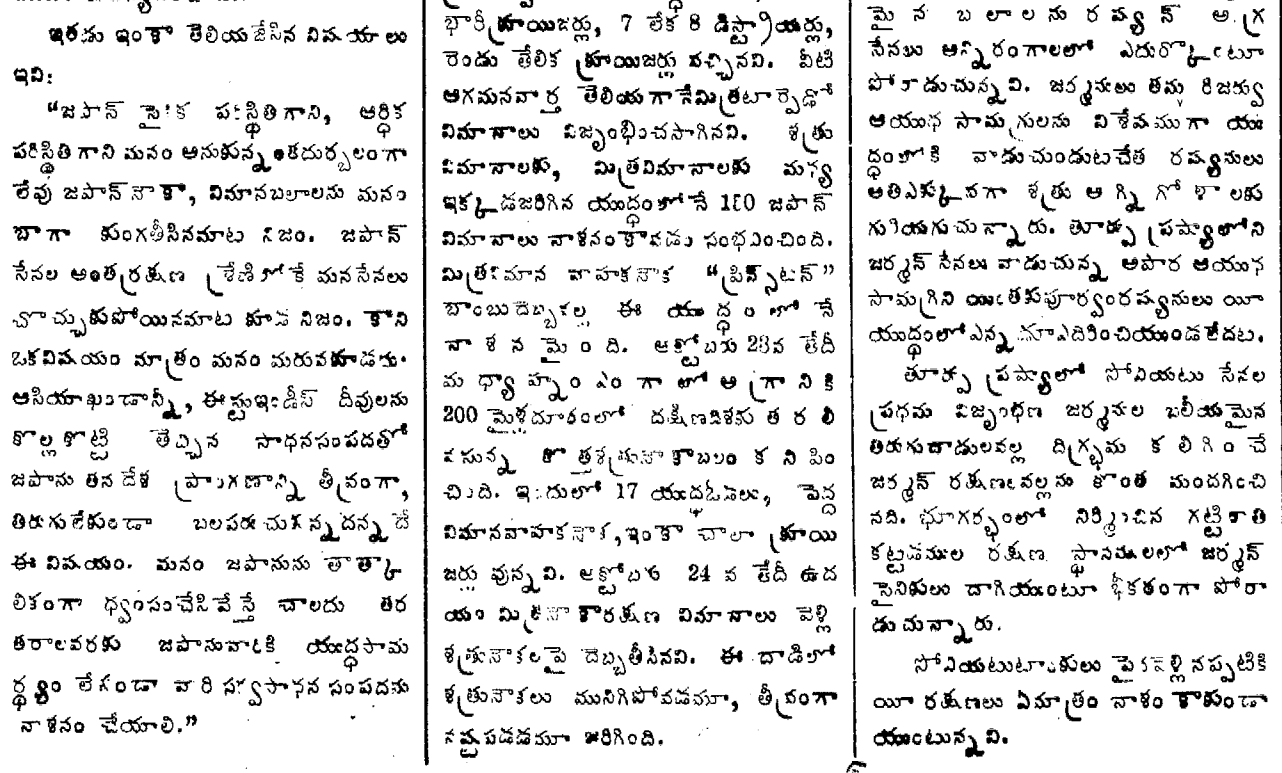 ఇతడు ఇంకా తెలియజేసిన విషయాలు
ఇవి:
“జపాన్ సైనిక పరిస్థితిగాని, ఆర్థిక
పరిస్థితి గాని మనం అనుకున్నంతదుర్బలంగా
లేవు జపాన్ నౌకా, విమానబలాలను మనం
బాగా కుంగతీసినమాట నిజం. జపాన్
సేనల అంతర్రక్షణ శ్రేణిలోకే మనసేనలు
చొచ్చుకుపోయినమాట కూడ నిజం. కాని
ఒకవిషయం మాత్రం మనం మరువకూడదు.
ఆసియాఖండాన్నీ, ఈస్టుఇండీస్ దీవులను
కొల్ల కొట్టి తెచ్చిన సాధనసంపదతో
జపాను తనదేశ ప్రాంగణాన్ని తీవ్రంగా,
తిరుగులేకుండా బలపరుచుకొన్నదన్నదే
ఈ విషయం. మనం జపానును తాత్కా
లికంగా ధ్వంసంచేసివేస్తే చాలదు తర
తరాలవరకు జపానువారికి యుద్ధసామ
ర్థ్యం లేకుండా వారి సర్వసాధన సంపదను
నాశనం చేయాలి.”
భారీక్రూయిజర్లు, 7 లేక 8 డిస్ట్రాయర్లు,
రెండు తేలిక క్రూయిజర్లు వచ్చినవి. వీటి
ఆగమనవార్త తెలియగానేమిత్రటార్పెడో
విమానాలు విజృంభించసాగినవి. శత్రు
విమానాలకు, మిత్రవిమానాలకు మధ్య
ఇక్కడజరిగిన యుద్ధంలోనే 150 జపాన్
విమానాలు నాశనంకావడం సంభవించింది.
మిత్రవిమాన వాహకనౌక “ప్రిన్స్‌టన్”
బాంబుదెబ్బకల్ల ఈ యుద్ధంలోనే
నాశనమైంది. అక్టోబరు 23వ తేదీ
మధ్యాహ్నం ఎం గా లో ఆ గ్రానికి
200 మైళ్లదూరంలో దక్షిణదిశకు తరలి
వస్తున్న కొత్తశత్రునౌకాబలం కనిపిం
చింది. ఇందులో 17 యుద్ధఓడలు, పెద్ద
విమానవాహకనౌక, ఇంకా చాలా క్రూయి
జర్లు వున్నవి. అక్టోబరు 24 వ తేదీ ఉద
యం మిత్రనౌకారక్షణ విమానాలు వెళ్లి
శత్రునౌకలపై దెబ్బతీసినవి. ఈ దాడిలో
శత్రునౌకలు మునిగిపోవడమూ, తీవ్రంగా
నష్టపడడమూ జరిగింది.
మైన బలాలను రష్యన్ అగ్ర
సేనలు అన్నిరంగాలలో ఎదుర్కొంటూ
పోరాడుచున్నవి. జర్మనులు తమ రిజర్వు
ఆయుధ సామగ్రులను విశేషముగా యు
ద్ధంలోకి వాడుచుండుటచేత రష్యనులు
అతిఎక్కువగా శత్రు అగ్ని గోళాలకు
గురియగుచున్నారు. తూర్పు ప్రష్యాలోని
జర్మన్ సేనలు వాడుచున్న అపార ఆయుధ
సామగ్రిని యింతకుపూర్వంరష్యనులు యీ
యుద్ధంలో ఎన్నడూఎదిరించియుండలేదట.
తూర్పు ప్రష్యాలో సోవియటు సేనల
ప్రథమ విజృంభణ జర్మనుల బలీయమైన
తిరుగుదాడులవల్ల దిగ్భ్రమ కలిగించే
జర్మన్ రక్షణలవల్లను కొంత మందగించి
నది. భూగర్భంలో నిర్మించిన గట్టిరాతి
కట్టడముల రక్షణ స్థానములలో జర్మన్
సైనికులు దాగియుంటూ భీకరంగా పోరా
డుచున్నారు.
సోవియటుటాంకులు పైకివెళ్లినప్పటికి
యీ రక్షణలు ఏమాత్రం నాశం కాకుండా
యుంటున్నవి.